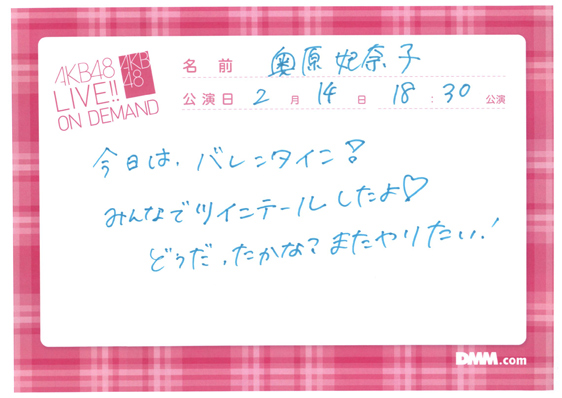 AKB48
LIVE!!
ON DEMAND
AKB
48
名前 奥原妃奈子
公演日 2月14日 18:30公演
今日は、バレンタイン!
みんなでツインテールしたよ♡
どぅだったかな?またやりたい!
DMM.com